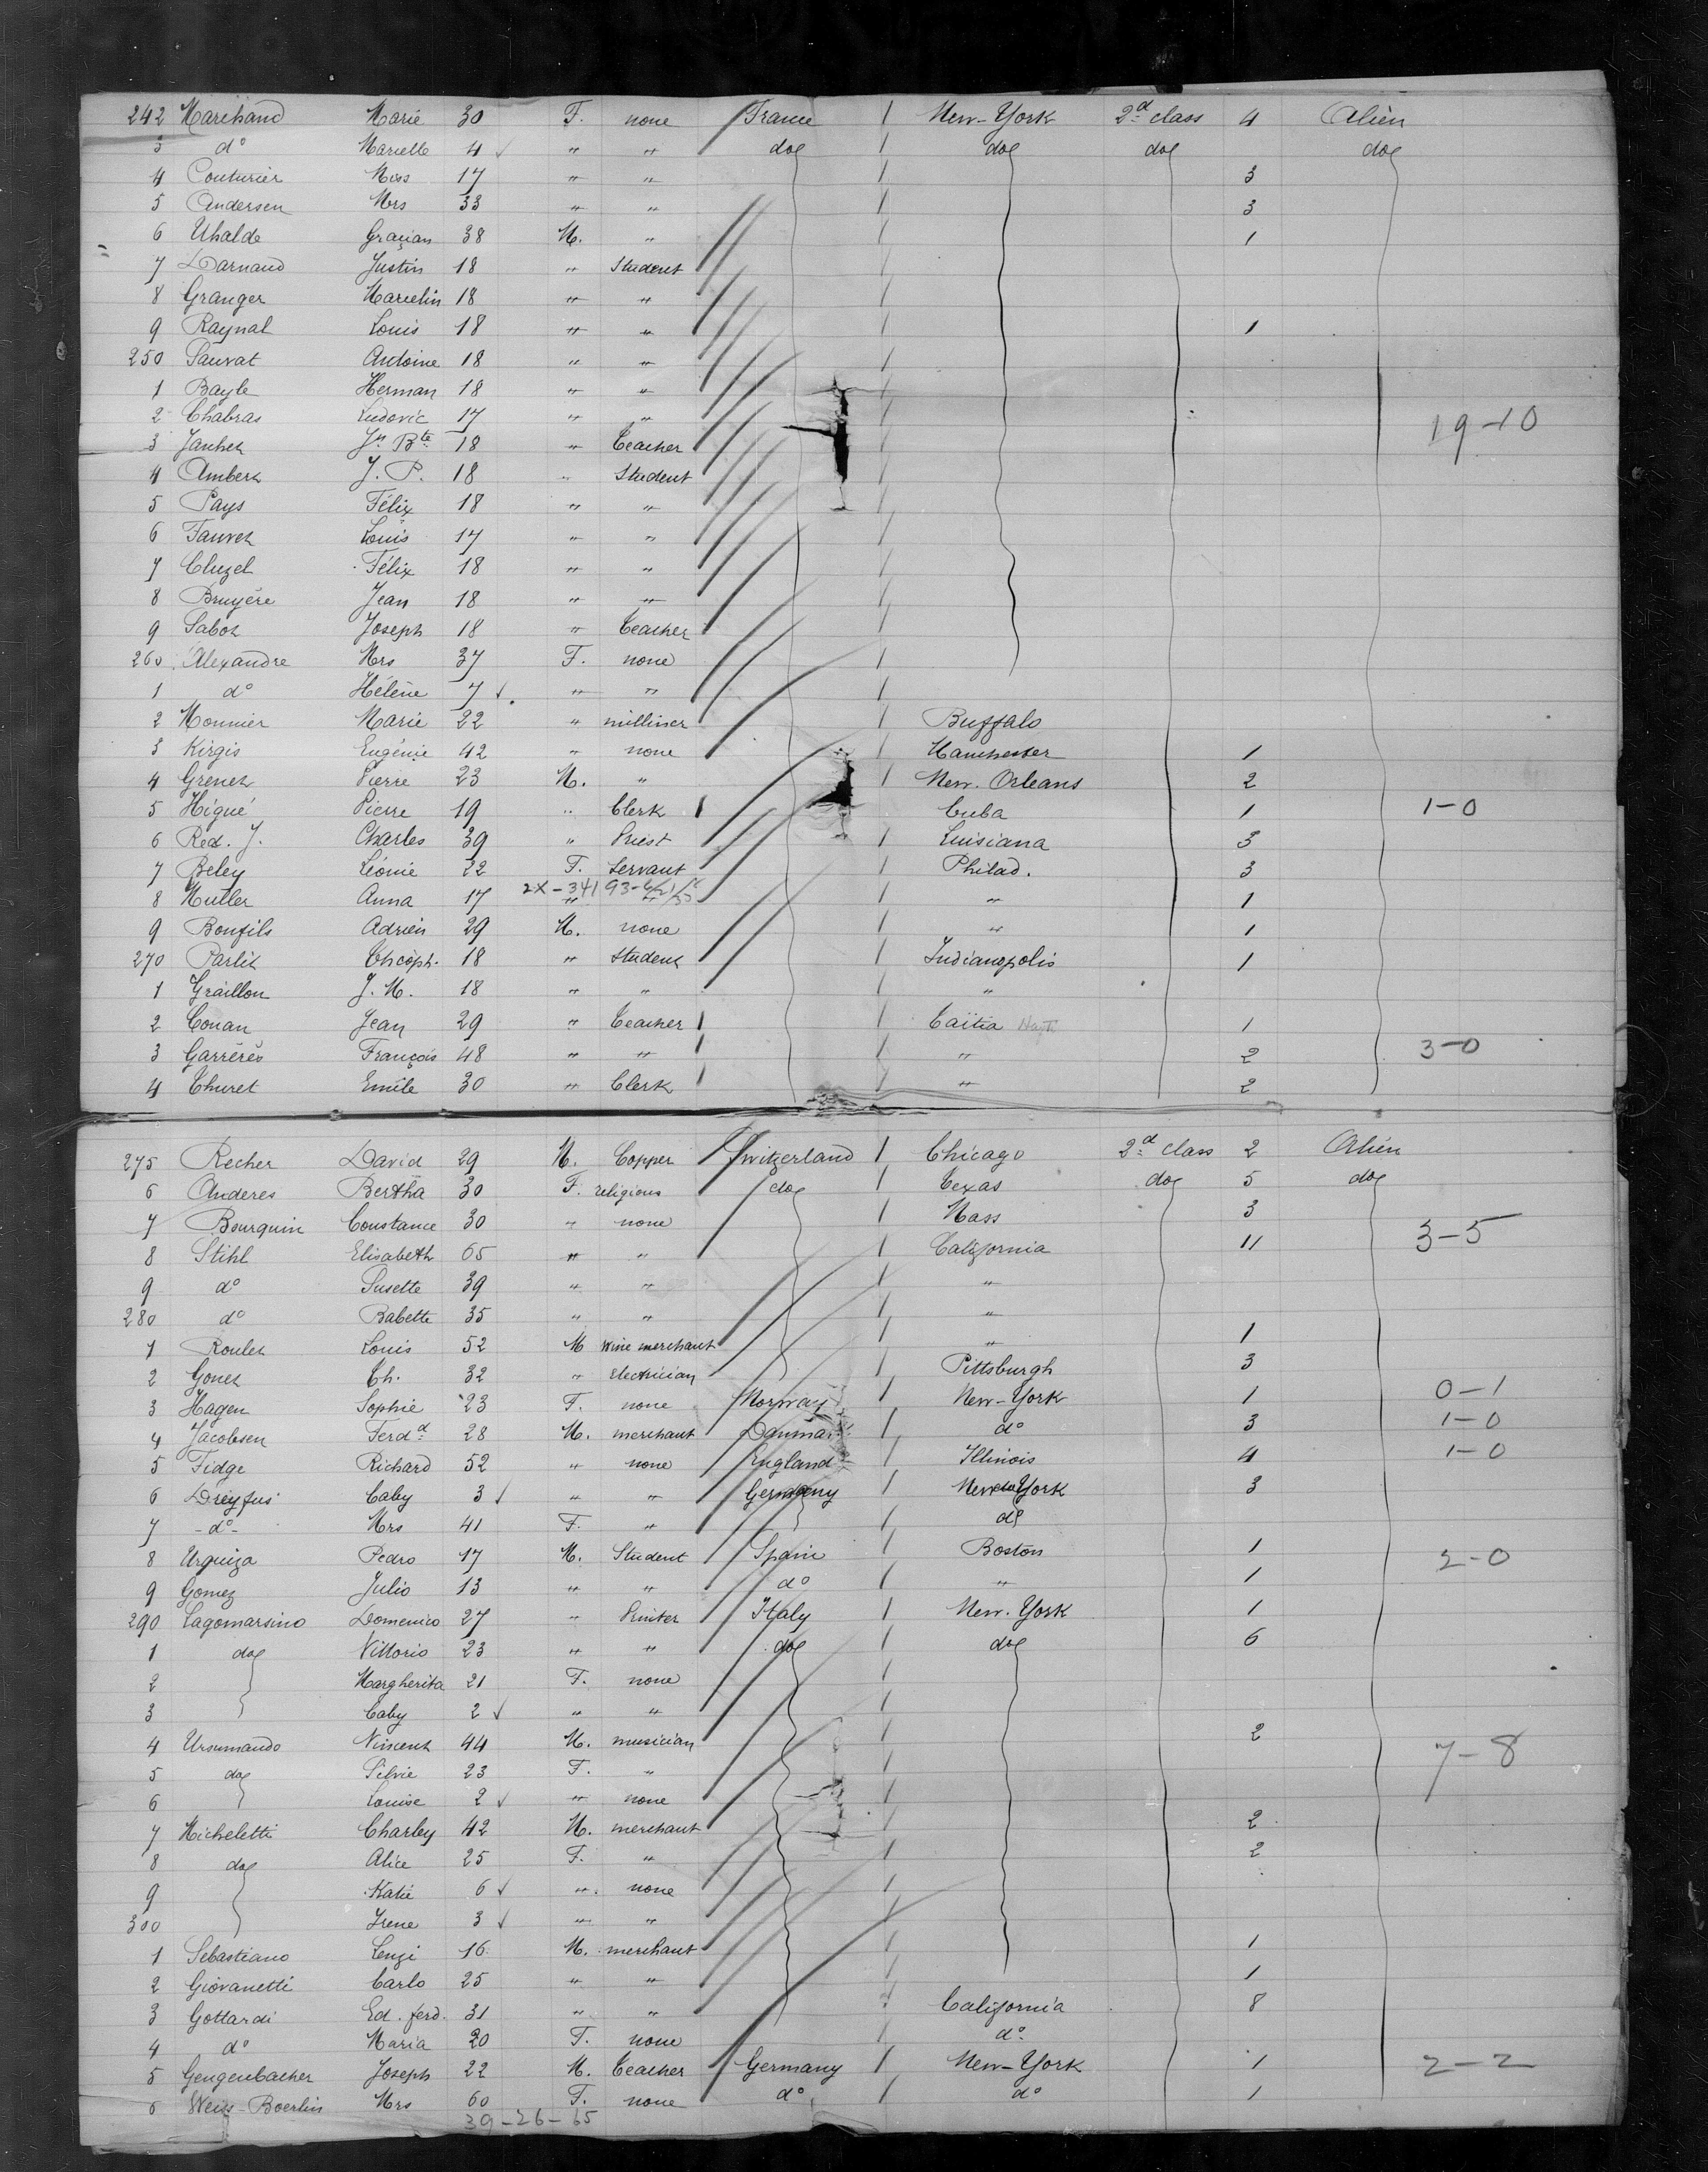 242 Marchand Marie 30 F. none France 1 New-York 2d class 4 Alien
3 do Marielle 4 ✓ " " do 1 do do do
4 Couturier Miss 17 " " 1 3
5 Andersen Mrs 33 " " 1 3
6 Uhalde Graçian 38 M. " 1 1
7 Darnaud Justin 18 " Student 1
8 Granger Marcelin 18 " " 1
9 Raynal Louis 18 " " 1 1
250 Sauvat Antoine 18 " " 1
1 Bayle Herman 18 " " 1
2 Chabras Ludovic 17 " " 1 19-10
3 Jauhet Jn Bte 18 " Teacher 1
4 Ambert J. P. 18 " Student 1
5 Pays Félix 18 " " 1
6 Fauvet Louis 17 " " 1
7 Cluzel Félix 18 " " 1
8 Bruyére Jean 18 " " 1
9 Sabot Joseph 18 " Teacher 1
260 Alexandre Mrs 37 F. none 1
1 do Hélène 7 ✓ " " 1
2 Monnier Marie 22 " milliner 1 Buffalo
3 Kirgis Eugénie 42 " none 1 Manchester 1
4 Grenet Pierre 23 M. " 1 New. Orleans 2
5 Higué Pierre 19 " Clerk 1 Cuba 1 1-0
6 Red. J. Charles 39 " Priest 1 Luisiana 3
7 Beley Léonie 22 F. Servant 1 Philad. 3
2X-34193-
8 Muller Anna 17 " " 1 " 1
9 Bonfils Adrien 29 M. none 1 " 1
270 Parlit Théoph. 18 " Student 1 Indianopolis 1
1 Graillon J. M. 18 " " 1 "
2 Conan Jean 29 " Teacher 1 1 Caïtia Hayti 1
3 Garrérés François 48 " " 1 1 " 2 3-0
4 Churet Emile 30 " Clerk 1 1 " 2
275 Recher David 29 M. Copper Switzerland 1 Chicago 2d class 2 Alien
6 Anderes Bertha 30 F. religious do 1 Texas do 5 do
7 Bourquin Constance 30 " none 1 Mass 3
8 Stihl Elisabeth 65 " " 1 California 11 3-5
9 do Susette 39 " " 1 "
280 do Babette 35 " " 1 "
1 Roulet Louis 52 M wine merchant 1 " 1
2 Gonet Ch. 32 " electrician 1 Pittsburgh 3
3 Hagen Sophie 23 F. none Norway 1 New-York 1 0-1
4 Jacobsen Ferdd 28 M. merchant Danmark 1 do 3 1-0
5 Fidge Richard 52 " none England 1 Illinois 4 1-0
6 Dreyfus Caby 3 ✓ " " Germany 1 New York 3
7 -do- Mrs 41 F. " 1 do
8 Urquiza Pedro 17 M. Student Spain 1 Boston 1 2-0
9 Gomez Julio 13 " " do 1 " 1
290 Lagomarsino Domenico 27 " Printer Italy 1 New-York 1
1 do Vittorio 23 " " do 1 do 6
2 Margherita 21 F. none 1
3 Caby 2 ✓ " " 1
4 Ursumando Vincent 44 M. musician 1 2
5 do Silvie 23 F. " 1 7-8
6 Louise 2 ✓ " none 1
7 Micheletti Charley 42 M. merchant 1 2
8 do Alice 25 F. " 1 2
9 Katie 6 ✓ " none 1
300 Irene 3 ✓ " " 1
1 Sebastiano Lenzi 16 M. merchant 1 1
2 Giovanetti Carlo 25 " " 1 1
3 Gottardi Ed. ferd. 31 " " California 8
4 do Maria 20 F. none 1 do
5 Gengenbacher Joseph 22 M. Teacher Germany 1 New-York 1 2-2
6 Weiss-Boerlin Mrs 60 F. none do 1 do 1
39-26-65